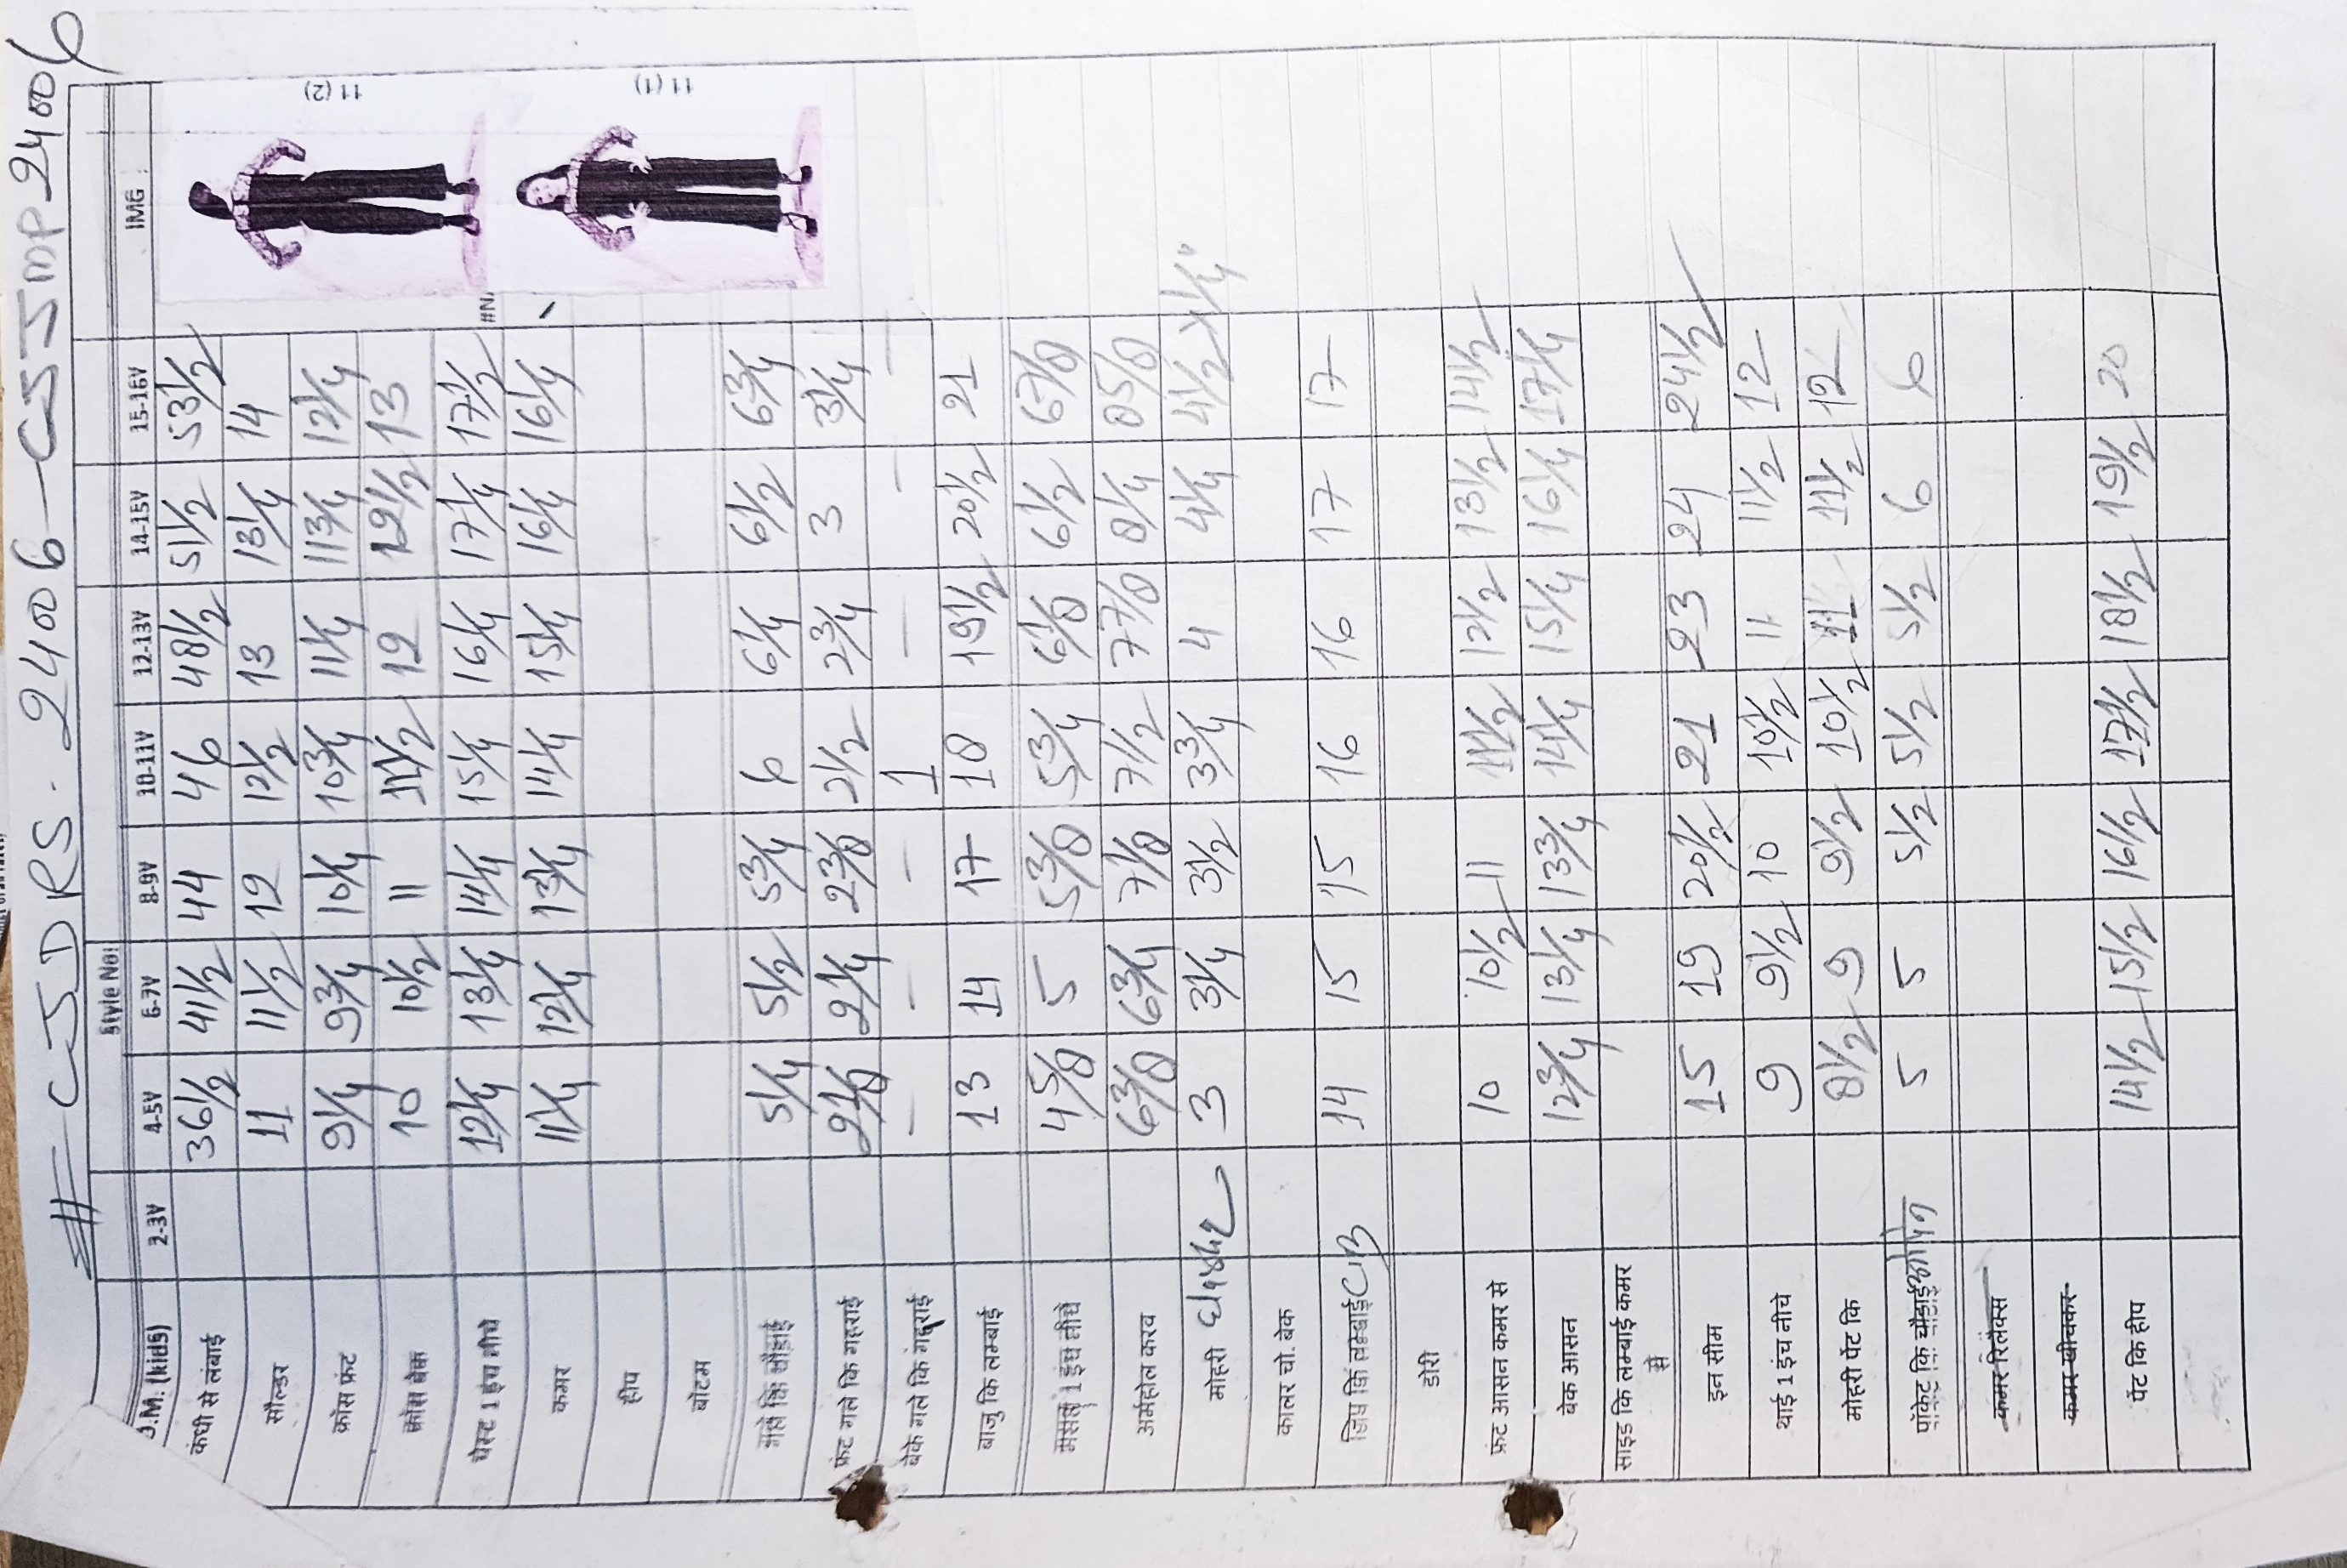 # CSJDRS. 24006 - CSJMP 24006
Style No:
IMG :
J.M. (kids) 2-3Y 4-5Y 6-7Y 8-9Y 10-11Y 12-13Y 14-15Y 15-16Y
कंधी से लंबाई 36 1/2 41 1/2 44 46 48 1/2 51 1/2 53 1/2
सौल्डर 11 11 1/2 12 12 1/2 13 13 1/4 14
क्रॉस फ्रंट 9 1/4 9 3/4 10 1/4 10 3/4 11 1/4 11 3/4 12 1/4
क्रॉस बेक 10 10 1/2 11 11 1/2 12 12 1/2 13
चेस्ट 1 इंच नीचे 12 1/4 13 1/4 14 1/4 15 1/4 16 1/4 17 1/4 17 1/2
कमर 11 1/4 12 1/4 13 1/4 14 1/4 15 1/4 16 1/4 16 1/4
हीप
बॉटम
गले कि चौड़ाई 5 1/4 5 1/2 5 3/4 6 6 1/4 6 1/2 6 3/4
फ्रंट गले कि गहराई 2 1/8 2 1/4 2 3/8 2 1/2 2 3/4 3 3 1/4
बेक गले कि गहराई - - - 1 - - -
बाजु कि लम्बाई 13 14 17 18 19 1/2 20 1/2 21
मसल 1 इंच नीचे 4 5/8 5 5 3/8 5 3/4 6 1/8 6 1/2 6 7/8
अर्महोल करव 6 3/8 6 3/4 7 1/8 7 1/2 7 7/8 8 1/4 8 5/8
मोहरी 3 3 1/4 3 1/2 3 3/4 4 4 1/4 4 1/2 x 1/4"
कालर चो. बेक
जिप कि लम्बाई CB 14 15 15 16 16 17 17
डोरी
फ्रंट आसन कमर से 10 10 1/2 11 11 1/2 12 1/2 13 1/2 14 1/2
बेक आसन 12 3/4 13 1/4 13 3/4 14 1/4 15 1/4 16 1/4 17 1/4
साइड कि लम्बाई कमर से
इन सीम 15 19 20 1/2 21 23 24 24 1/2
थाई 1 इंच नीचे 9 9 1/2 10 10 1/2 11 11 1/2 12
मोहरी पेंट कि 8 1/2 9 9 1/2 10 1/2 11 11 1/2 12
पॉकेट कि चौडाई ओपन 5 5 5 1/2 5 1/2 5 1/2 6 6
कमर रिलैक्स
कमर खीचकर
पेंट कि हीप 14 1/2 15 1/2 16 1/2 17 1/2 18 1/2 19 1/2 20
11 (2)
#N/
11 (1)